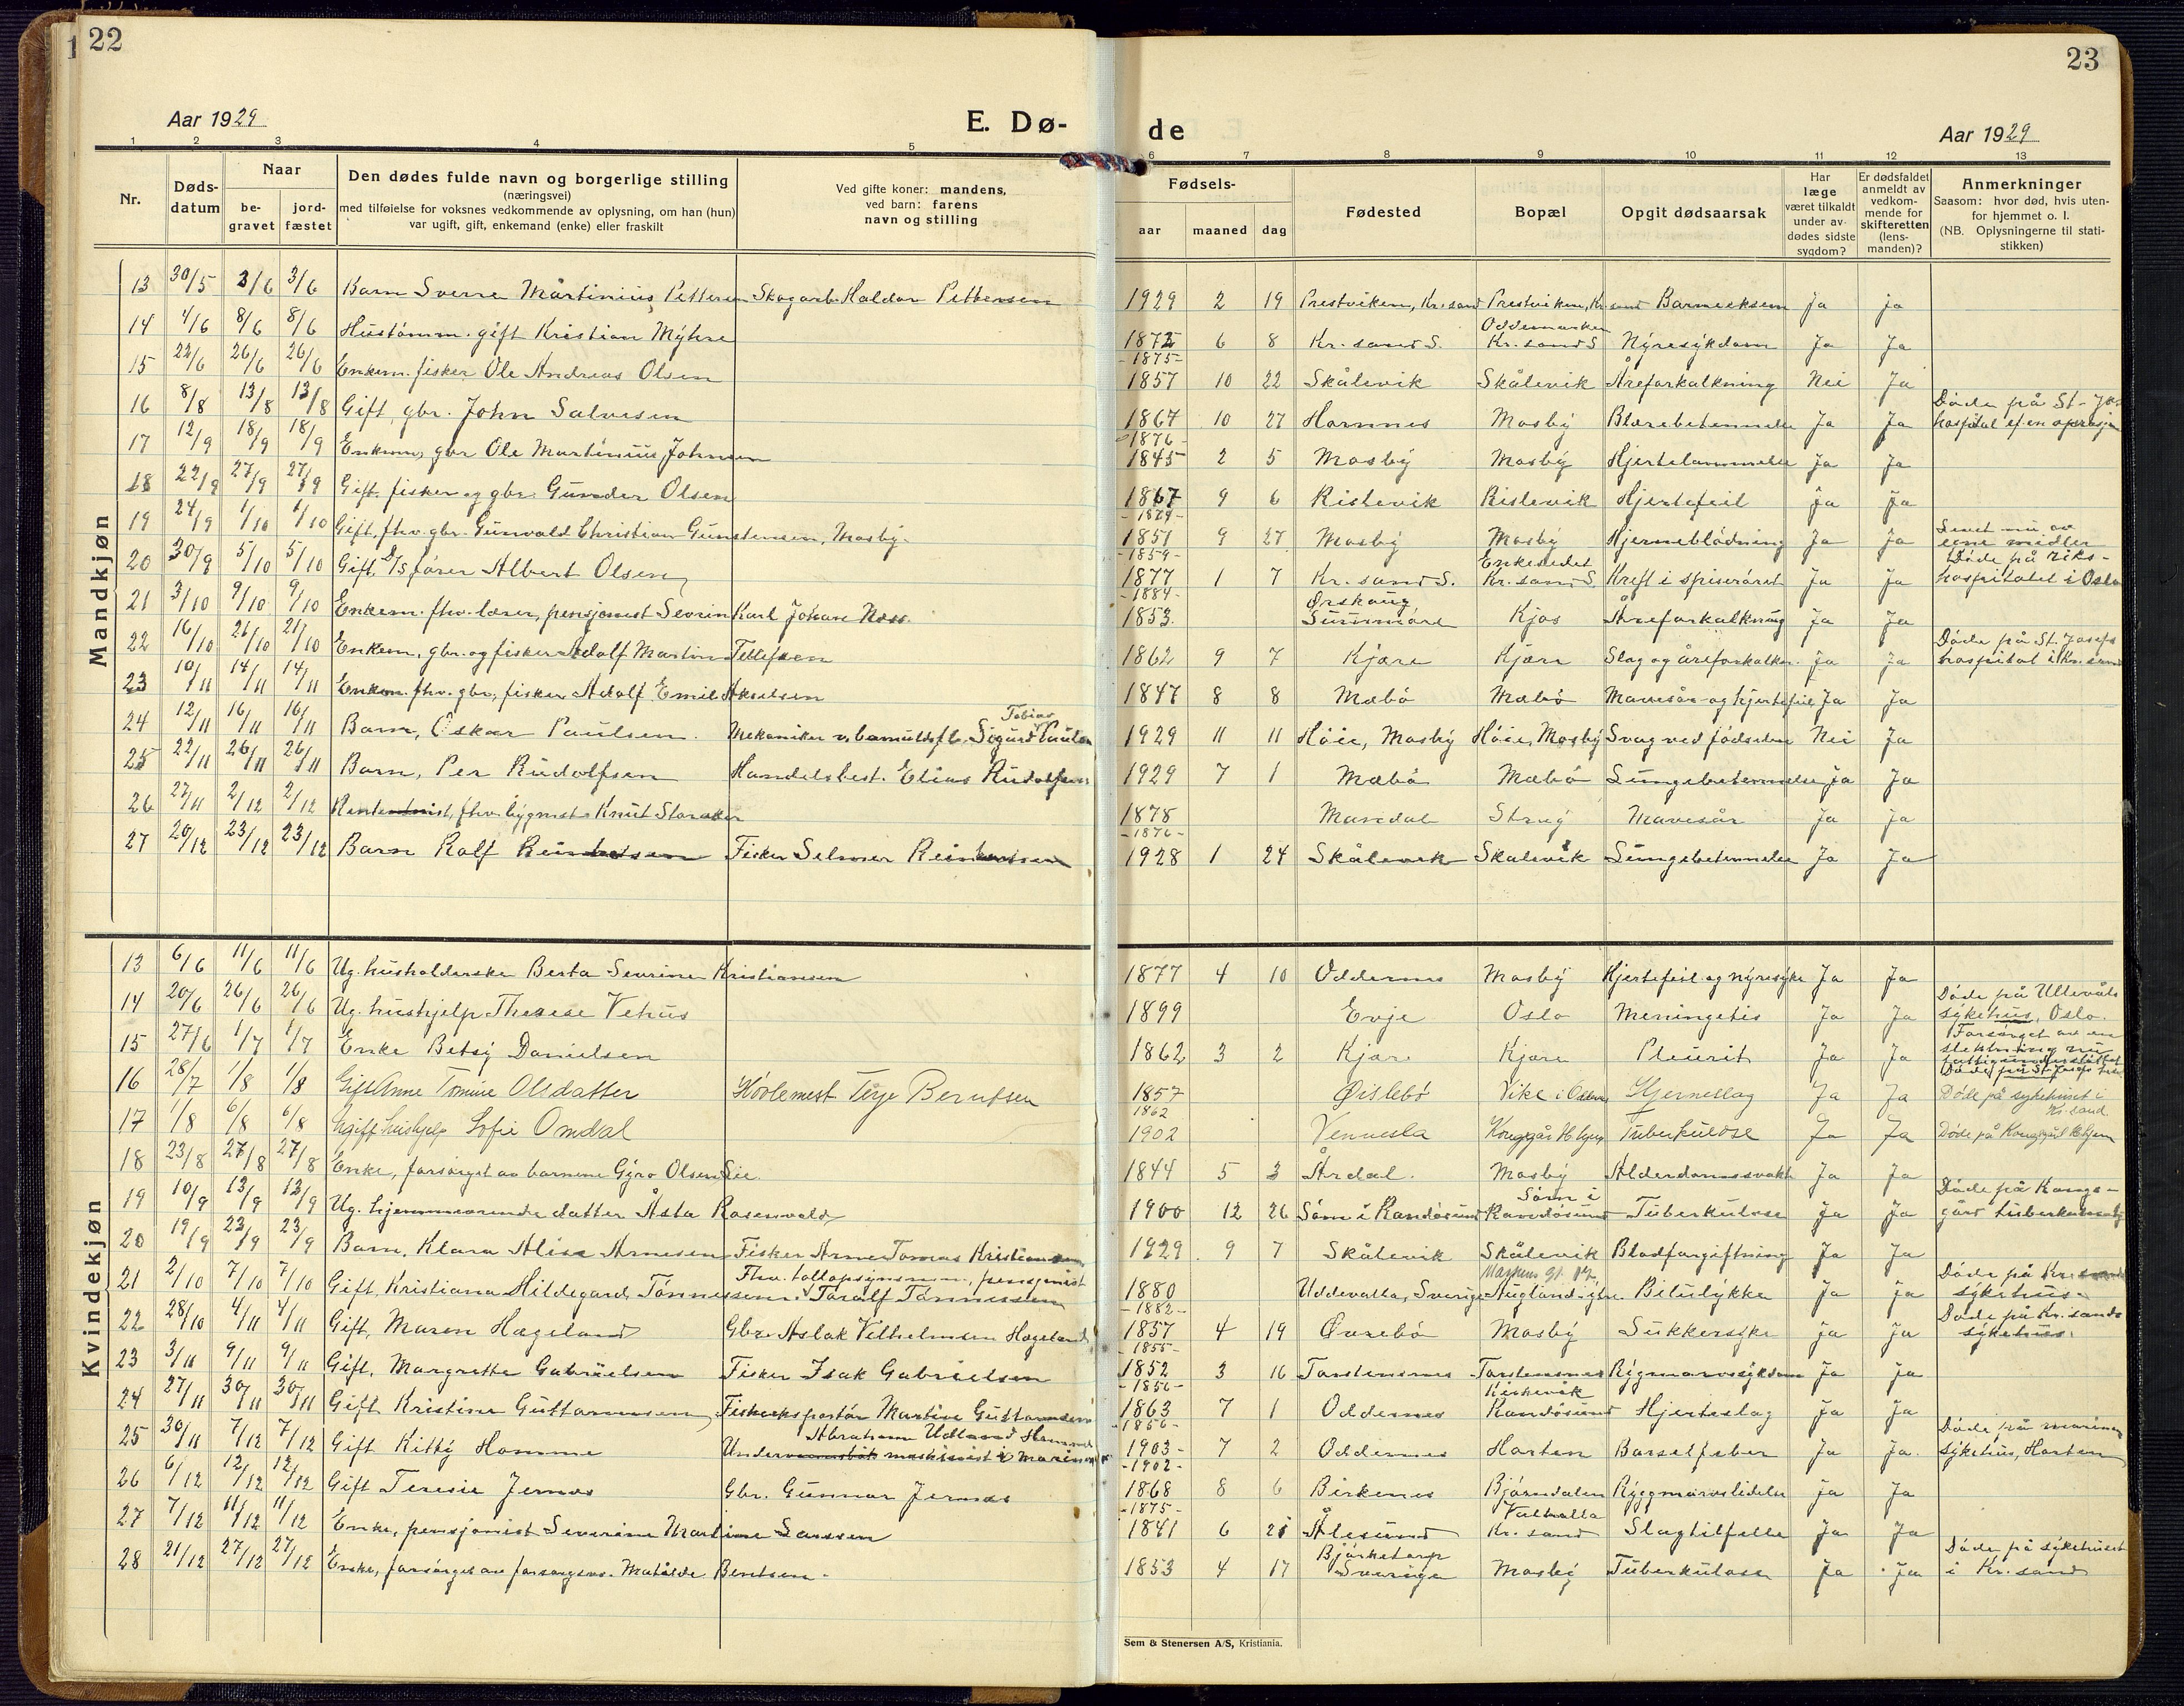 22
23
Aar 1929
E. Dø-
de
Aar 1929
1 2 3 4 5 6 7 8 9 10 11 12 13
Nr.
Døds-
datum
Naar
be-
gravet
jord-
fæstet
Den dødes fulde navn og borgerlige stilling
(næringsvei)
med tilføielse for voksnes vedkommende av oplysning, om han (hun)
var ugift, gift, enkemand (enke) eller fraskilt
Ved gifte koner: mandens,
ved barn: farens
navn og stilling
Fødsels-
aar maaned dag
Fødested
Bopæl
Opgit dødsaarsak
Har
læge
været tilkaldt
under av-
dødes sidste
sygdom?
Er dødsfaldet
anmeldt av
vedkom-
mende for
skifteretten
(lens-
manden)?
Anmerkninger
Saasom: hvor død, hvis uten-
for hjemmet o. l.
(NB. Oplysningerne til stati-
stikken)
Mandkjøn
13 30/5 3/6 3/6 Barn Sverre Mårtinius Pettersen Skogarb. Haldor Pettersen 1929 2 19 Prestviken, Kr.sand Prestviken, Kr.sand ja ja
14 4/6 8/6 8/6 Hustømm. gift Kristian Myhre 1872 6 8 Kr. sand S. Oddemarken Kr. sand S Nyresykdom Ja Ja
-1875-
15 22/6 26/6 26/6 Enkem. fisker Ole Andreas Olsen 1857 10 22 Skålevik Skålevik Åreforkalkning Nei Ja
16 8/8 13/8 13/8 Gift, gbr. John Salvesen 1867 10 27 Hornnes Mosby Blærebetennelse Ja Ja Døde på St- Jos. hospital ef. en operasjon
-1876-
17 12/9 18/9 18/9 Enkem, gbr Ole Martinius Johnsen 1845 2 5 Mosby Mosby Hjertelammelse Ja Ja
18 22/9 27/9 27/9 Gift. fisker og gbr. Gunder Olsen 1867 9 6 Ristevik Ristevik Hjertefeil Ja Ja
19 24/9 1/10 1/10 Gift, fhv. gbr. Gunvald Christian Gunstensen, Mosby. 1851 9 27 Mosby Mosby Hjerneblødning Ja Ja Levet nu av egne midler
-1859-
20 30/9 5/10 5/10 Gift. D/S fører Albert Olsen 1877 1 7 Kr. sand S. Enkesedet Kr. sand S. Kreft i spiserøret Ja ja Døde på riks-hospitalet i Oslo
-1884-
21 3/10 9/10 9/10 Enkem. fhv. lærer, pensjonist Severin Karl Johan Næss. 1853. Ørskoug Sunnmøre Kjos Åreforkalkning Ja Ja
22 16/10 21/10 21/10 Enkem, gbr. og fisker Adolf Martin Tellefsen 1862 9 7 Kjære Kjære Slag og åreforkalkn. Ja Ja Døde på St. Josefs hospital i Kr. sand
23 10/11 14/11 14/11 Enkem. fhv. gbr, fisker Adolf Emil Akselsen 1847 8 8 Mæbø Mæbø Mavesår og hjertefeil Ja Ja
24 12/11 16/11 16/11 Barn, Oskar Paulsen. Mekaniker v. bomuldsfb. Sigurd Tobias Paulsen 1929 11 11 Høie, Mosby Høie, Mosby Svag ved fødselen Nei Ja
25 22/11 26/11 26/11 Barn, Per Rudolfsen Handelsbest. Elias Rudolfsen 1929 7 1 Mæbø Mæbø Lungebetennelse Ja Ja
26 27/11 2/12 2/12 fhv. bygmest Knut Storaker 1878 Mandal Strag Mavesår Ja Ja
-1876-
27 20/12 23/12 23/12 Barn Rolf Reinhartsen Fisker Selmer Reinhartsen 1928 1 24 Skålevik Skålevik Lungebetennelse Ja Ja
Kvindekjøn
13 6/6 11/6 11/6 Ug. husholderske Berta Severine Kristiansen 1877 4 10 Oddernes Mosby Hjertefeil og nyresyke Ja Ja
14 20/6 26/6 26/6 Ug. hushjelp Therese Vehus 1899 Evje Oslo Meningetis Ja Ja Døde på Ullevåls sykehus, Oslo.
15 27/6 1/7 1/7 Enke Betsy Danielsen 1862 3 2 Kjære Kjære Pleurit Ja Ja Forsørget av en slektning
16 28/7 1/8 1/8 Gift Anne Tomine Olsdatter Høvlemest Terje Berntsen 1857 Øislebø Vike i Oddern. Hjerneslag Ja Ja Døde på sykehuset i Kr. sand
1862
17 1/8 6/8 6/8 Ugift hushjelp Sofie Omdal 1902 Vennesla Kongsgård Tuberkulose Ja Ja Døde på Kongsgård
18 23/8 27/8 27/8 Enke, forsørget av barnene Gyro Olsen Lie. 1844 5 3 Årdal. Mosby Alderdomssvakh Ja Ja
19 10/9 13/9 13/9 Ug. hjemmeværende datter Åsta Rosenvold 1900 12 26 Søm i Randøsund Søm i Randøsund Tuberkulose Ja Ja Døde på Kongs-gård
20 19/9 23/9 23/9 Barn. Klara Alise Arnesen Fisker Arne Tomas Kristiansen 1929 9 7 Skålevik Skålevik Blodforgiftning Ja Ja
21 2/10 7/10 7/10 Gift, Kristiana Hildegard Tønnessen. Fhv. tollopsynsm., pensjonist Toralf Tønnessen 1880 Uddevalla, Sverige Bilulykke Ja Ja Døde på Kr. sands sykehus.
-1882-
22 28/10 4/11 4/11 Gift, Maren Hægeland Gbr. Aslak Vilhelmsen Hægeland 1857 4 19 Øvrebø Mosby Sukkersyke Ja Ja Døde på Kr. sands sykehus.
-1855-
23 3/11 9/11 9/11 Gift, Margrethe Gabrielsen Fisker Isak Gabrielsen 1852 3 16 Torstensnes Torstensnes Rygmarvssykdom Ja Ja
-1856-
24 27/11 30/11 30/11 Gift Kristine Guttormsen Fiskeeksportør Martin Guttormsen 1863 7 1 Oddernes Kirkevik Randøsund Hjerteslag Ja Ja
-1856-
25 30/11 7/12 7/12 Gift Kitty Homme Abraham Udland Homme maskinist i Marinen 1903 7 2 Oddernes Horten Barselfeber Ja Ja. Døde på marinens sykehus, Horten
-1902-
26 6/12 12/12 12/12 Gift Teresie Jernes Gbr. Gunnar Jernes 1868 8 6 Birkenes Bjørndalen Ryggmarvslidelse Ja Ja
-1875-
27 7/12 11/12 11/12 Enke, pensjonist Severine Martine Larssen 1841 6 25 Ålesund Valhalla Kr. sand Slagtilfelle Ja Ja
28 21/12 27/12 27/12 Enke, forsørget av forsorgsv. Matilde Bentsen. 1853 4 17 Bjørketorp Sverige Mosby Tuberkulose Ja Ja Døde på sykehuset i Kr. sand
Sem & Stenersen A/S, Kristiania.